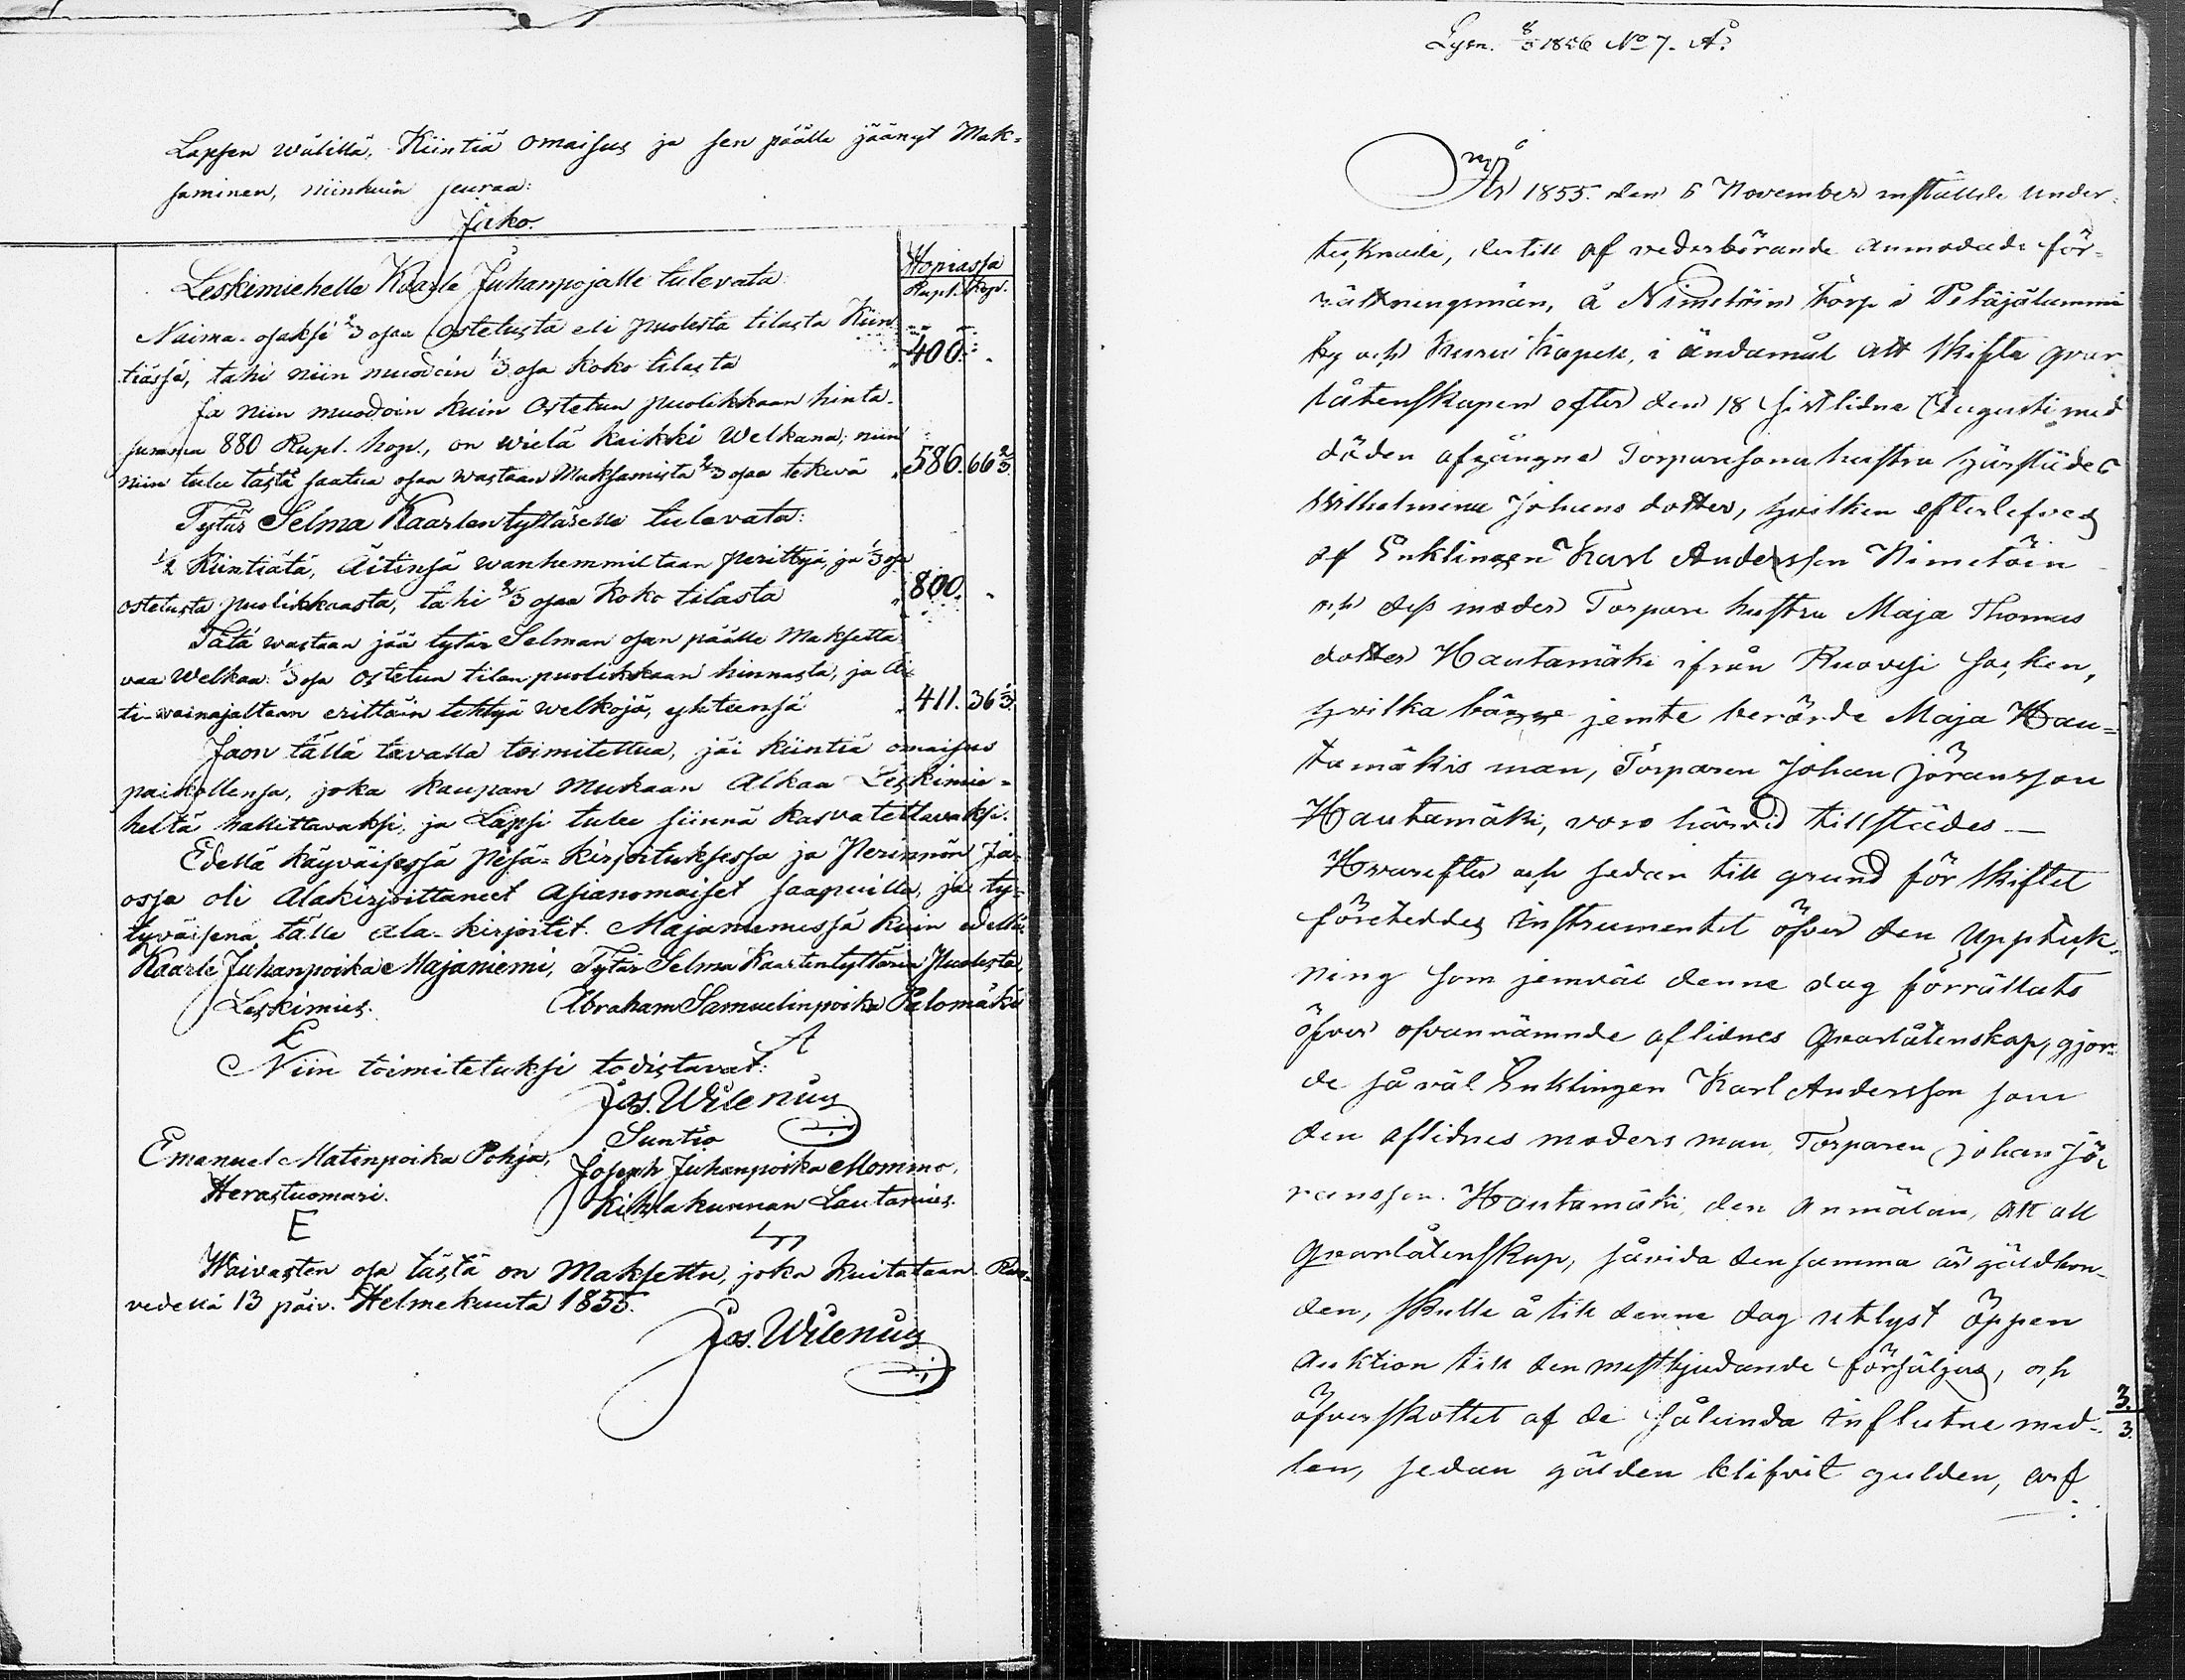 Lapsen wälillä, Kiintiä omaisus ja sen päälle jäänyt Mak=
saminen, niinkuin seuraa:
Jako.
Hopiassa
Leskimiehelle Kaarle Juhanpojalle tulevata:
Rupl. Kop.
Naima-osaksi 2/3 osaa Ostetusta eli puolesta tilasta Kiin
tiässä, tahi niin muodoin 1/3 osa koko tilasta " 400. "
Ja niin muodoin kuin Ostetun puolikkaan hinta-
summa 880 Rupl. hop., on wielä kaikki Welkana; niin
niin tulee tästä saatua osaa wastaan Maksamista 2/3 osaa tekevä " 586. 66 2/3.
Tytär Selma Kaarlentyttärelle tulevata:
1/2 Kiintiätä, Äitinsä wanhemmiltaan perittyä, ja 1/3 osa
ostetusta puolikkaasta, tahi 2/3 osaa koko tilasta " 800. "
Tätä wastaan jää tytär Selman osan päälle Maksetta
vaa Welkaa: 1/3 osa Ostetun tilan puolikkaan hinnasta, ja äi-
ti-wainajaltaan erittäin tehtyä welkojä, yhteensä " 411. 36 1/3.
Jaon tällä tavalla toimitettua, jäi kiintiä omaisus
paikollensa, joka kaupan mukaan Alkaa Leskimie=
heltä hallittavaksi; ja Lapsi tulee siinnä kasvatettavaksi.
Edellä käyväisessä Pesä-kirjoituksessa ja Perinnön Ja-
ossa oli Alakirjoittaneet Asianomaiset saapuilla, ja ty-
tyväisenä tälle ala-kirjoitit. Majaniemessä kuin edellä
Kaarle Juhanpoika Majaniemi, Tytär Selma Kaarlentyttären Puolesta
Leskimies. Abraham Samuelinpoika Palomäki
Niin toimitetuksi todistavat:
Jos. Wilenius
Suntio
Emanuel Matinpoika Pohja, Joseph Juhanpoika Mommo,
Herastuomari. Kihlakunnan Lautamies.
E
Waivasten osa tästä on Maksettu, joka kuitataan. Ruo-
vedellä 13 päiv. Helmekuuta 1855.
Jos. Wilenius
Lysn. 8/5 1856 No 7. A:
År 1855. den 6 November inställde under-
tecknade, dertill af vederbörande anmodade för-
rättningsmän, å Nimetöin Torp i Petäjälammi
by och Kuru Kapell, i ändamål att skifta qvar-
låtenskapen efter den 18 sistlidne Augusti med
döden afgångne Torparesonahustru härstädes
Wilhelmina Johans dotter, hvilken efterlefves
af Enklingen Karl Andersson Nimetöin
och dess moder Torpare hustru Maja Thomas
dotter Hautamäki ifrån Ruovesi Socken,
hvilka bägge jemte berörde Maja Hau=
tamäkis man, Torparen Johan Jöransson
Hautamäki, voro härvid tillstädes—
Hvarefter och sedan till grund för skiftet
företeddes instrumentet öfver den Uppteck-
ning som jemväl denne dag förrättats
öfver ofvannämnde aflidnes Qvarlåtenskap, gjor-
de så väl Enklingen Karl Andersson som
den aflidnes moders man, Torparen Johan Jö-
ransson Hautamäki, den anmälan, att all
Qvarlåtenskap, såvida densamma är gäldbun-
den, skulle å till denne dag utlyst öppen
auktion till den mestbjudande försäljas, och
öfverskottet af de sålunda influtne med-
3.
3.
len, sedan gälden blifvit gulden, arf